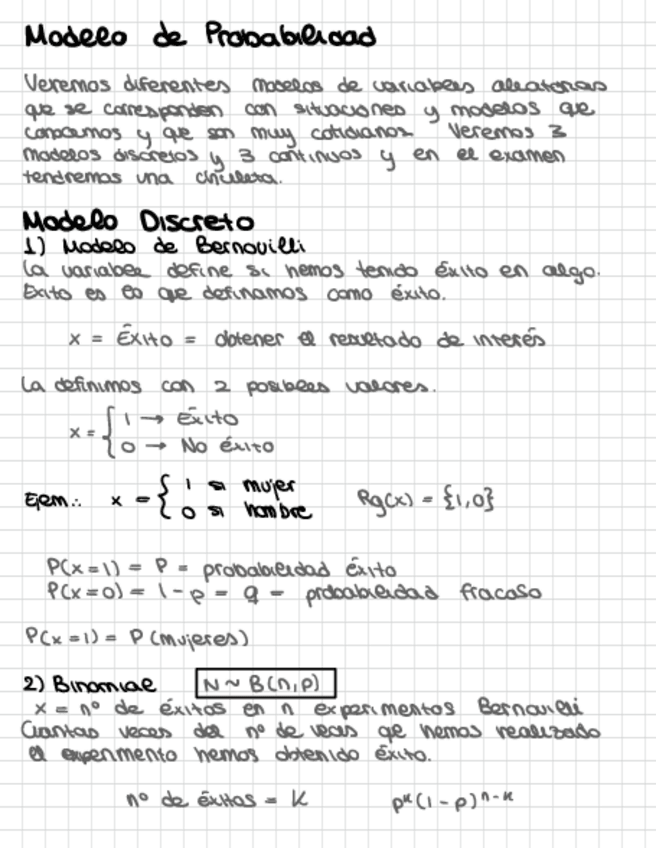 Modelo de Probabilidad
Veremos diferentes modelos de variables aleatorias
que se corresponden con situaciones y modelos que
conocemos y que son muy cotidianos. Veremos 3
modelos discretos y 3 continuos y en el examen
tendremos una chuleta.
Modelo Discreto
1) Modelo de Bernouilli
La variable define si hemos tenido éxito en algo.
Exito es lo que definamos como éxito.
x = Éxito = obtener el resultado de interés
La definimos con 2 posibles valores.
x = { 1 → Éxito
0 → No éxito
Ejem.: x = { 1 si mujer Rg(x) = {1,0}
0 si hombre
P(x=1) = P = probabilidad éxito
P(x=0) = 1-p = q = probabilidad fracaso
P(x=1) = P (mujeres)
2) Binomial N ~ B(n,p)
x = nº de éxitos en n experimentos Bernouilli
Cuantas veces del nº de veces qe hemos realizado
el experimento hemos obtenido éxito.
nº de éxitos = K pᴷ(1-p)ⁿ⁻ᴷ